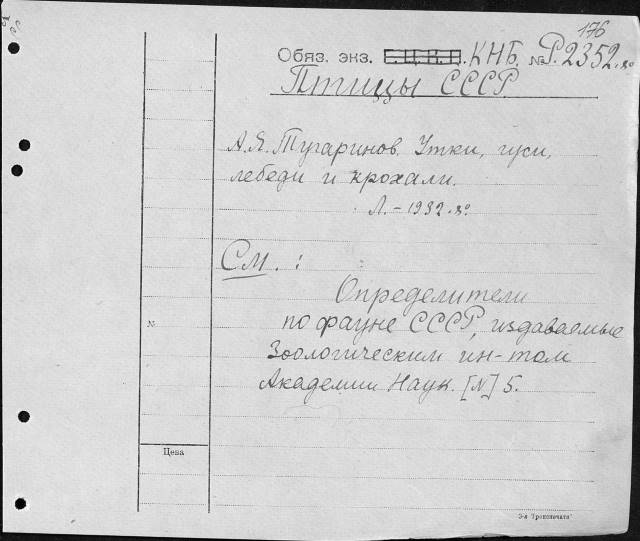 176
Обяз. экз. Е.Ц.К.П. КНБ. № Р.2352.8°
Птицы СССР
А.Я. Тугаринов. Утки, гуси,
лебеди и крохали.
Л. - 1932. 8°
См. :
Определители
по фауне СССР, издаваемые
Зоологическим ин-том
Академии Наук. [N] 5.
№
Цена